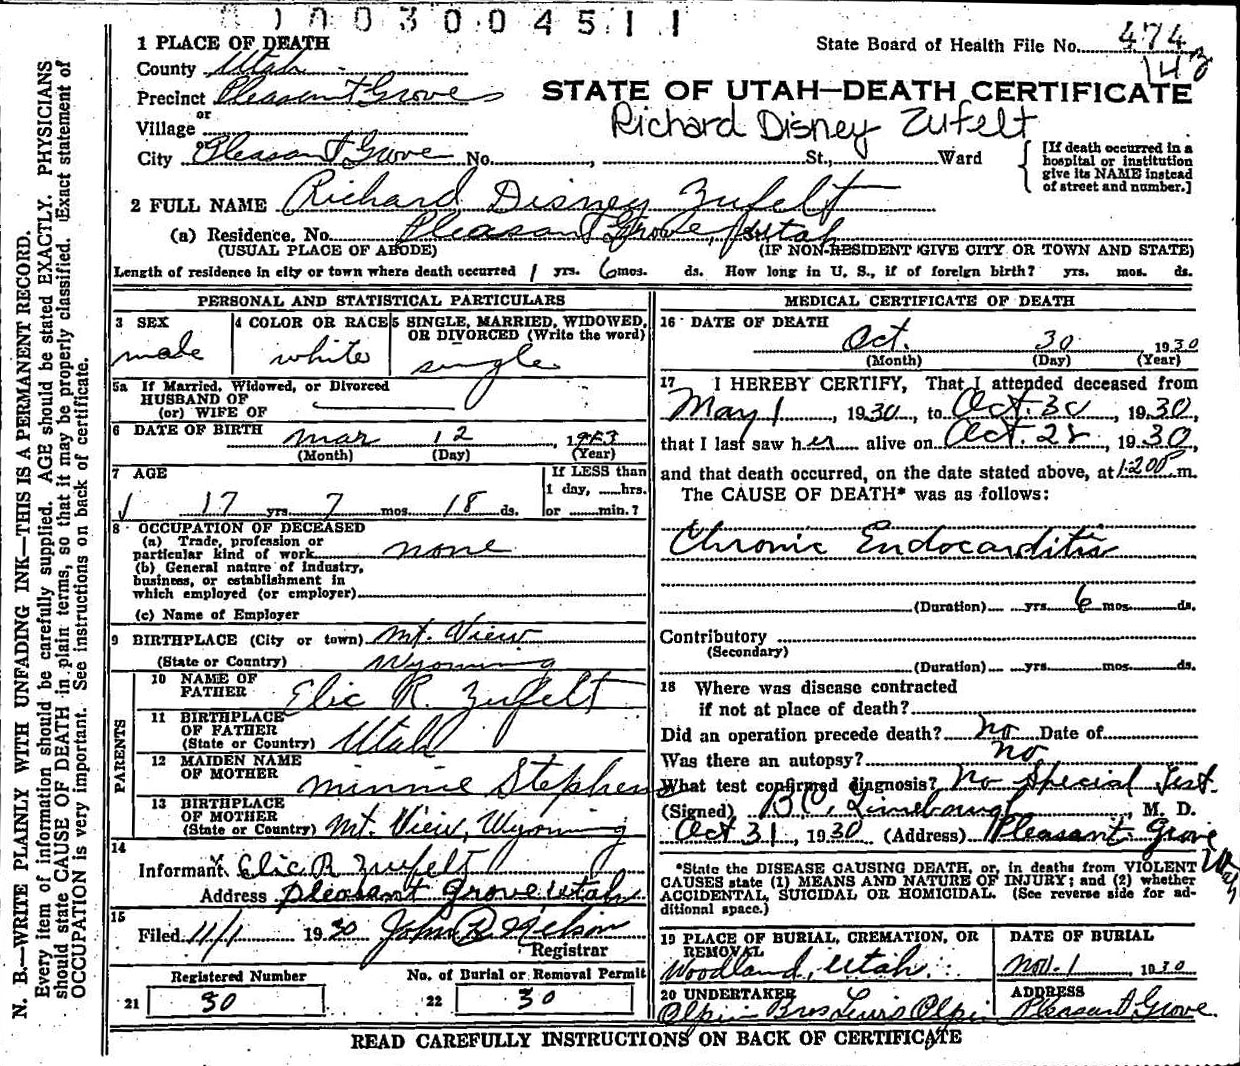 0 1 0 0 3 0 0 4 5 1 1
1 PLACE OF DEATH
State Board of Health File No. 474
143
County Utah
Precinct Pleasant Grove
STATE OF UTAH—DEATH CERTIFICATE
or
Village
Richard Disney Zufelt
or
City Pleasant Grove No. , St., Ward
[If death occurred in a hospital or institution give its NAME instead of street and number.]
2 FULL NAME Richard Disney Zufelt
(a) Residence. No. Pleasant Grove, Utah St.
(USUAL PLACE OF ABODE) (IF NON-RESIDENT GIVE CITY OR TOWN AND STATE)
Length of residence in city or town where death occurred 1 yrs. 6 mos. ds. How long in U. S., if of foreign birth? yrs. mos. ds.
PERSONAL AND STATISTICAL PARTICULARS
3 SEX
male
4 COLOR OR RACE
white
5 SINGLE, MARRIED, WIDOWED, OR DIVORCED (Write the word)
single
5a If Married, Widowed, or Divorced
HUSBAND OF
(or) WIFE OF
6 DATE OF BIRTH Mar 12, 1913
(Month) (Day) (Year)
7 AGE
17 yrs. 7 mos. 18 ds.
If LESS than
1 day, ......hrs.
or ......min.?
8 OCCUPATION OF DECEASED
(a) Trade, profession or
particular kind of work none
(b) General nature of industry,
business, or establishment in
which employed (or employer)
(c) Name of Employer
9 BIRTHPLACE (City or town) Mt. View
(State or Country) Wyoming
PARENTS
10 NAME OF
FATHER Elic R. Zufelt
11 BIRTHPLACE
OF FATHER
(State or Country) Utah
12 MAIDEN NAME
OF MOTHER Minnie Stephens
13 BIRTHPLACE
OF MOTHER
(State or Country) Mt. View, Wyoming
14
Informant Elic R Zufelt
Address Pleasant Grove Utah
15
Filed 11/1 1930 John B Nelson
Registrar
Registered Number
21 30
No. of Burial or Removal Permit
22 30
MEDICAL CERTIFICATE OF DEATH
16 DATE OF DEATH
Oct. 30 1930
(Month) (Day) (Year)
17 I HEREBY CERTIFY, That I attended deceased from
May 1, 1930, to Oct. 30, 1930,
that I last saw her alive on Oct. 28, 1930,
and that death occurred, on the date stated above, at 1:20 P m.
The CAUSE OF DEATH* was as follows:
Chronic Endocarditis
(Duration) yrs. 6 mos. ds.
Contributory
(Secondary)
(Duration) yrs. mos. ds.
18 Where was disease contracted
if not at place of death?
Did an operation precede death? No Date of
Was there an autopsy? no
What test confirmed diagnosis? No Special Test.
(Signed) B.C. Linebaugh, M. D.
Oct 31, 1930 (Address) Pleasant Grove
Utah
*State the DISEASE CAUSING DEATH, or, in deaths from VIOLENT
CAUSES state (1) MEANS AND NATURE OF INJURY; and (2) whether
ACCIDENTAL, SUICIDAL OR HOMICIDAL. (See reverse side for ad-
ditional space.)
19 PLACE OF BURIAL, CREMATION, OR
REMOVAL
Woodland, Utah.
DATE OF BURIAL
Nov. 1, 1930
20 UNDERTAKER
Olpin Bros Lewis Olpin
ADDRESS
Pleasant Grove.
READ CAREFULLY INSTRUCTIONS ON BACK OF CERTIFICATE
N. B.—WRITE PLAINLY WITH UNFADING INK—THIS IS A PERMANENT RECORD.
Every item of information should be carefully supplied. AGE should be stated EXACTLY. PHYSICIANS
should state CAUSE OF DEATH in plain terms, so that it may be properly classified. (Exact statement of
OCCUPATION is very important. See instructions on back of certificate.